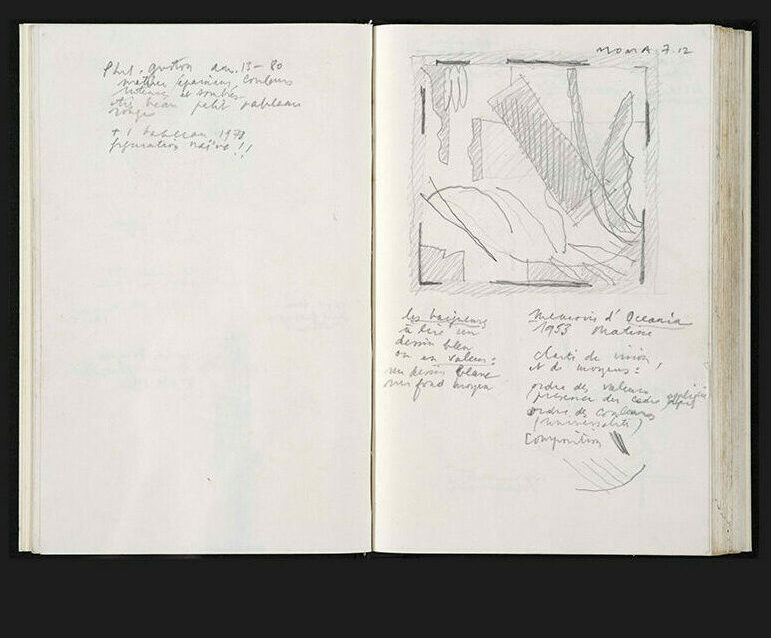 Phil. guston
épaisseur couleurs
intense et sombre
très beau petit tableau
rouge
+ 1 tableau 1978
figuration naïve !!
MOMA 7.12
les baigneurs
à lire un
dessin bleu
ou en valeur :
un dessin blanc
sur fond moyen
Memories d'Oceania
1953 Matisse
clarté de vision,
et de moyens :
ordre des valeurs
(présence des cadre
ordre des couleurs
(universalité)
Composition